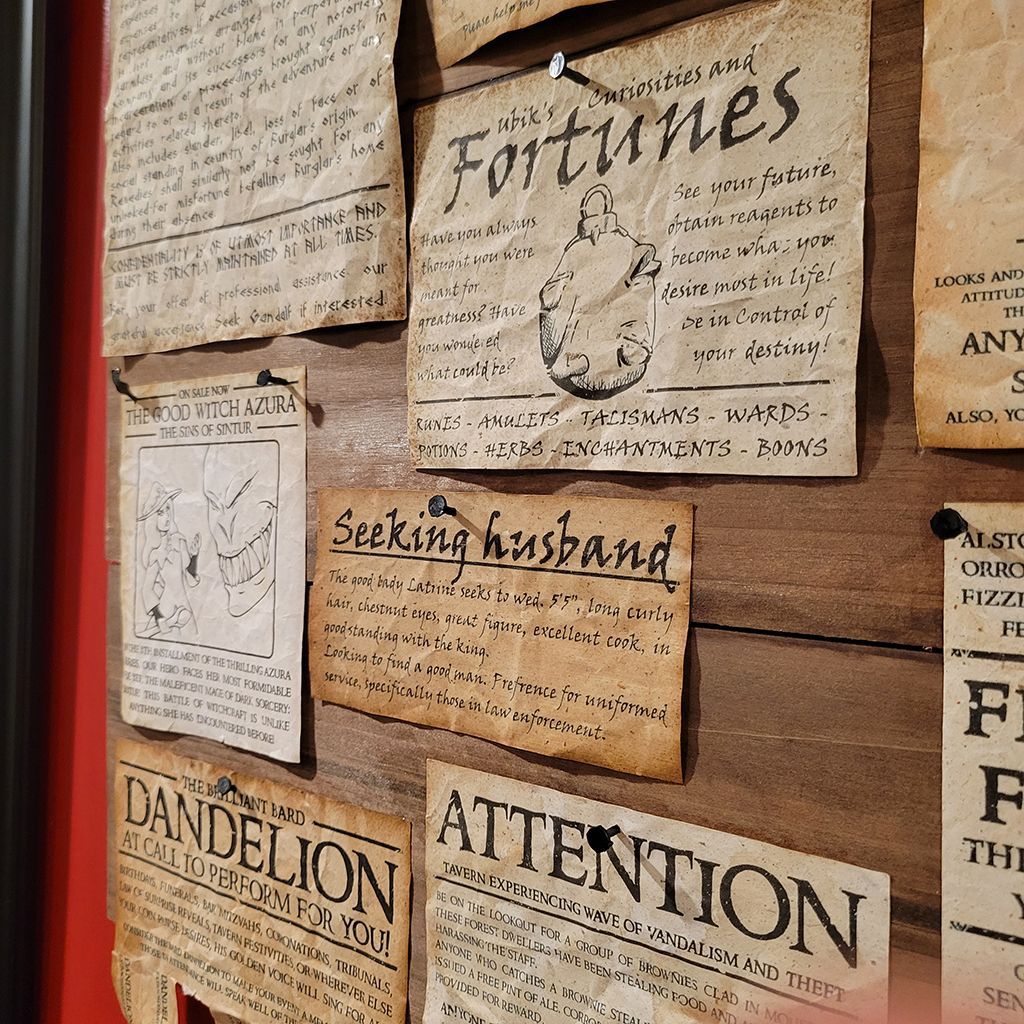 representatives, if occasion
is not otherwise arranged
harmless and without blame in perpetuity
company and its successors for any notorious
incarceration or proceedings brought against, in
regard to or as a result of the adventure or any
activities related thereto.
Also includes slander, libel, loss of face or of
social standing in country of Burglar's origin.
Remedies shall similarly not be sought for any
unlooked-for misfortune befalling Burglar's home
during their absence.
CONFIDENTIALITY IS OF UTMOST IMPORTANCE AND
MUST BE STRICTLY MAINTAINED AT ALL TIMES.
For your offer of professional assistance, our
grateful acceptance. Seek Gandalf if interested.
Please help me
Ubik's Curiosities and
Fortunes
Have you always
thought you were
meant for
greatness? Have
you wondered
what could be?
See your future,
obtain reagents to
become what you
desire most in life!
Be in Control of
your destiny!
RUNES - AMULETS - TALISMANS - WARDS -
POTIONS - HERBS - ENCHANTMENTS - BOONS
LOOKS AND
ATTITUD
TH
ANY
S
ALSO, YO
ON SALE NOW
THE GOOD WITCH AZURA
THE SINS OF SINTUR
THE 5TH INSTALLMENT OF THE THRILLING AZURA
SERIES. OUR HERO FACES HER MOST FORMIDABLE
FOE YET, THE MALEFICENT MAGE OF DARK SORCERY:
SINTUR! THIS BATTLE OF WITCHCRAFT IS UNLIKE
ANYTHING SHE HAS ENCOUNTERED BEFORE!
Seeking husband
The good bady Latrine seeks to wed. 5'5", long curly
hair, chestnut eyes, great figure, excellent cook, in
good standing with the king.
Looking to find a good man. Prefrence for uniformed
service, specifically those in law enforcement.
ALSTO
ORRO
FIZZI
FE
F
F
TH
Y
SEN
THE BRILLIANT BARD
DANDELION
AT CALL TO PERFORM FOR YOU!
BIRTHDAYS, FUNERALS, BAR MITZVAHS, CORONATIONS, TRIBUNALS,
LAW OF SURPRISE REVEALS, TAVERN FESTIVITIES OR WHEREVER ELSE
YOUR COIN PURSE DESIRES, HIS GOLDEN VOICE WILL SING FOR
DANDELION TO MAKE YOUR EVENT A
THOSE IN ATTENDANCE WILL SPEAK WELL OF
DANDELION
DANDEL
ATTENTION
TAVERN EXPERIENCING WAVE OF VANDALISM AND THEFT
BE ON THE LOOKOUT FOR A GROUP OF BROWNIES CLAD IN
THESE FOREST DWELLERS HAVE BEEN STEALING FOOD AND
HARASSING THE STAFF.
ANYONE WHO CATCHES A BROWNIE STEAL
ISSUED A FREE PINT OF ALE.
PROVIDED FOR REWARD.
ANYONE